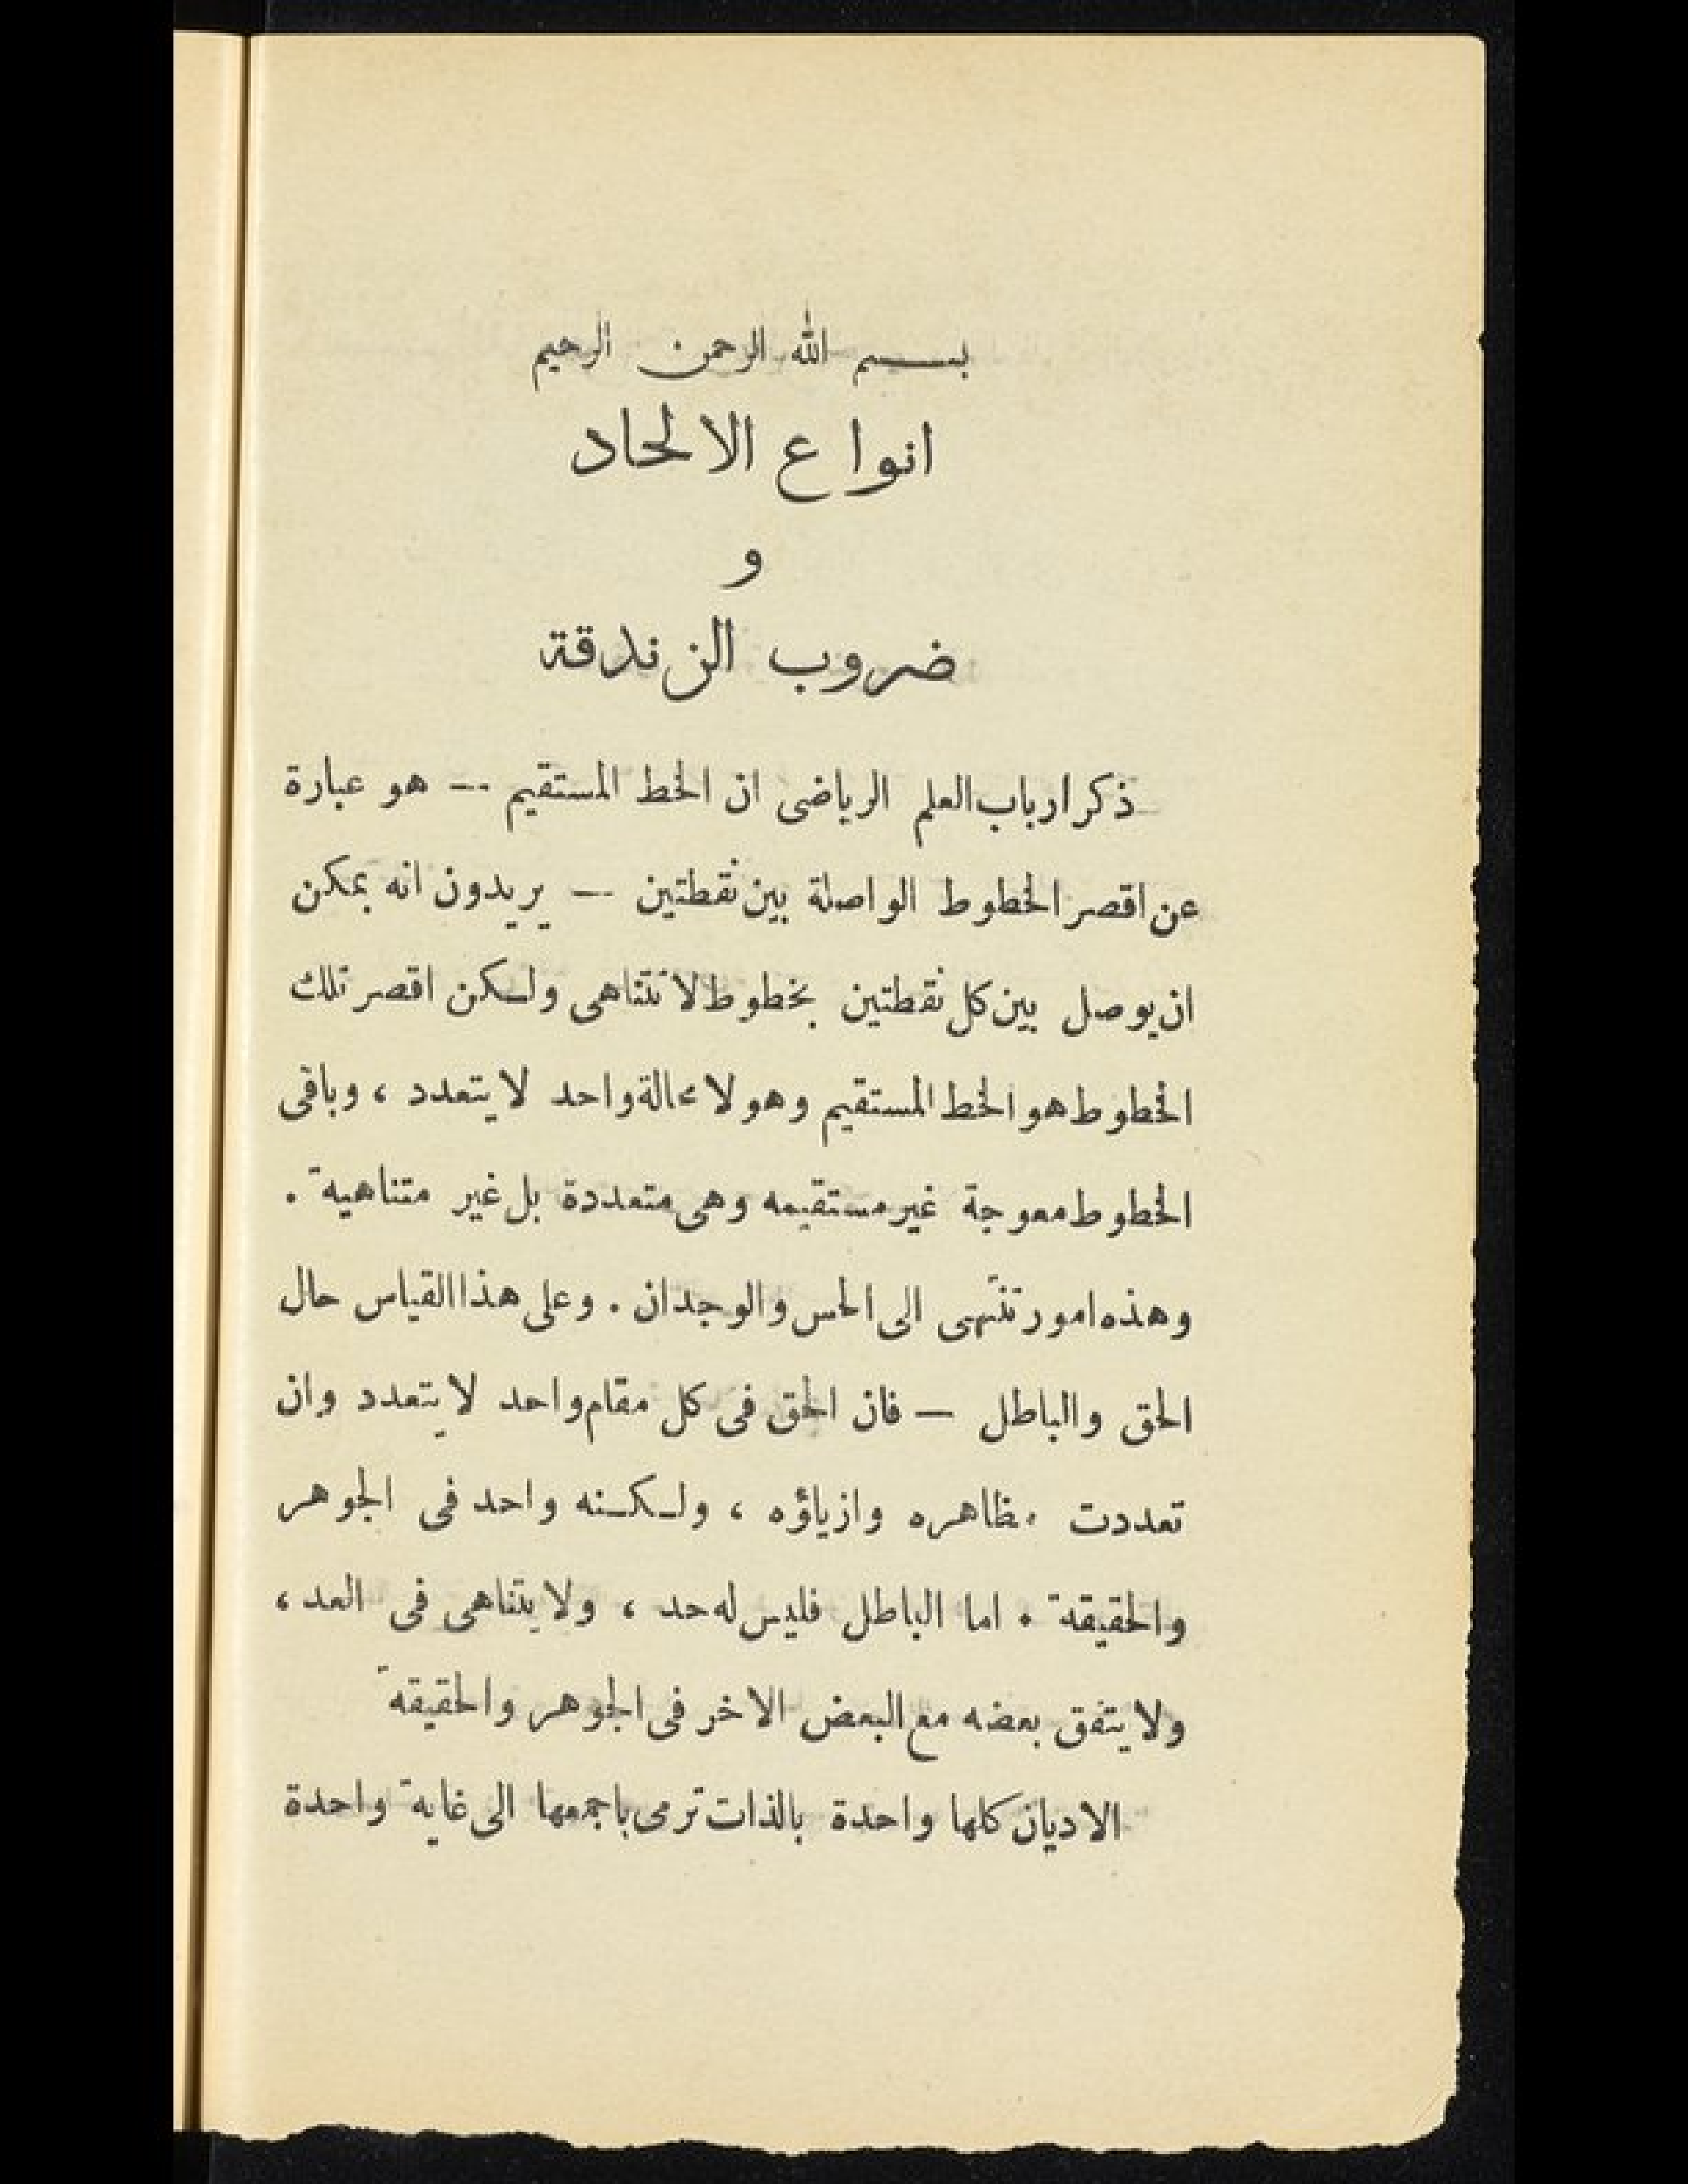 بسم الله الرحمن الرحيم
انواع الالحاد
و
ضروب الزندقة
ذكر ارباب العلم الرياضى ان الخط المستقيم -- هو عبارة
عن اقصر الخطوط الواصلة بين نقطتين — يريدون انه يمكن
ان يوصل بين كل نقطتين بخطوط لا تتناهى ولكن اقصر تلك
الخطوط هو الخط المستقيم وهو لا محالة واحد لا يتعدد ، وباقى
الخطوط معوجة غير مستقيمه وهى متعددة بل غير متناهية .
وهذه امور تنتهى الى الحس والوجدان . وعلى هذا القياس حال
الحق والباطل — فان الحق فى كل مقام واحد لا يتعدد وان
تعددت مظاهره وازياؤه ، ولكنه واحد فى الجوهر
والحقيقة . اما الباطل فليس له حد ، ولا يتناهى فى العد ،
ولا يتفق بعضه مع البعض الاخر فى الجوهر والحقيقة
الاديان كلها واحدة بالذات ترمى باجمعها الى غاية واحدة